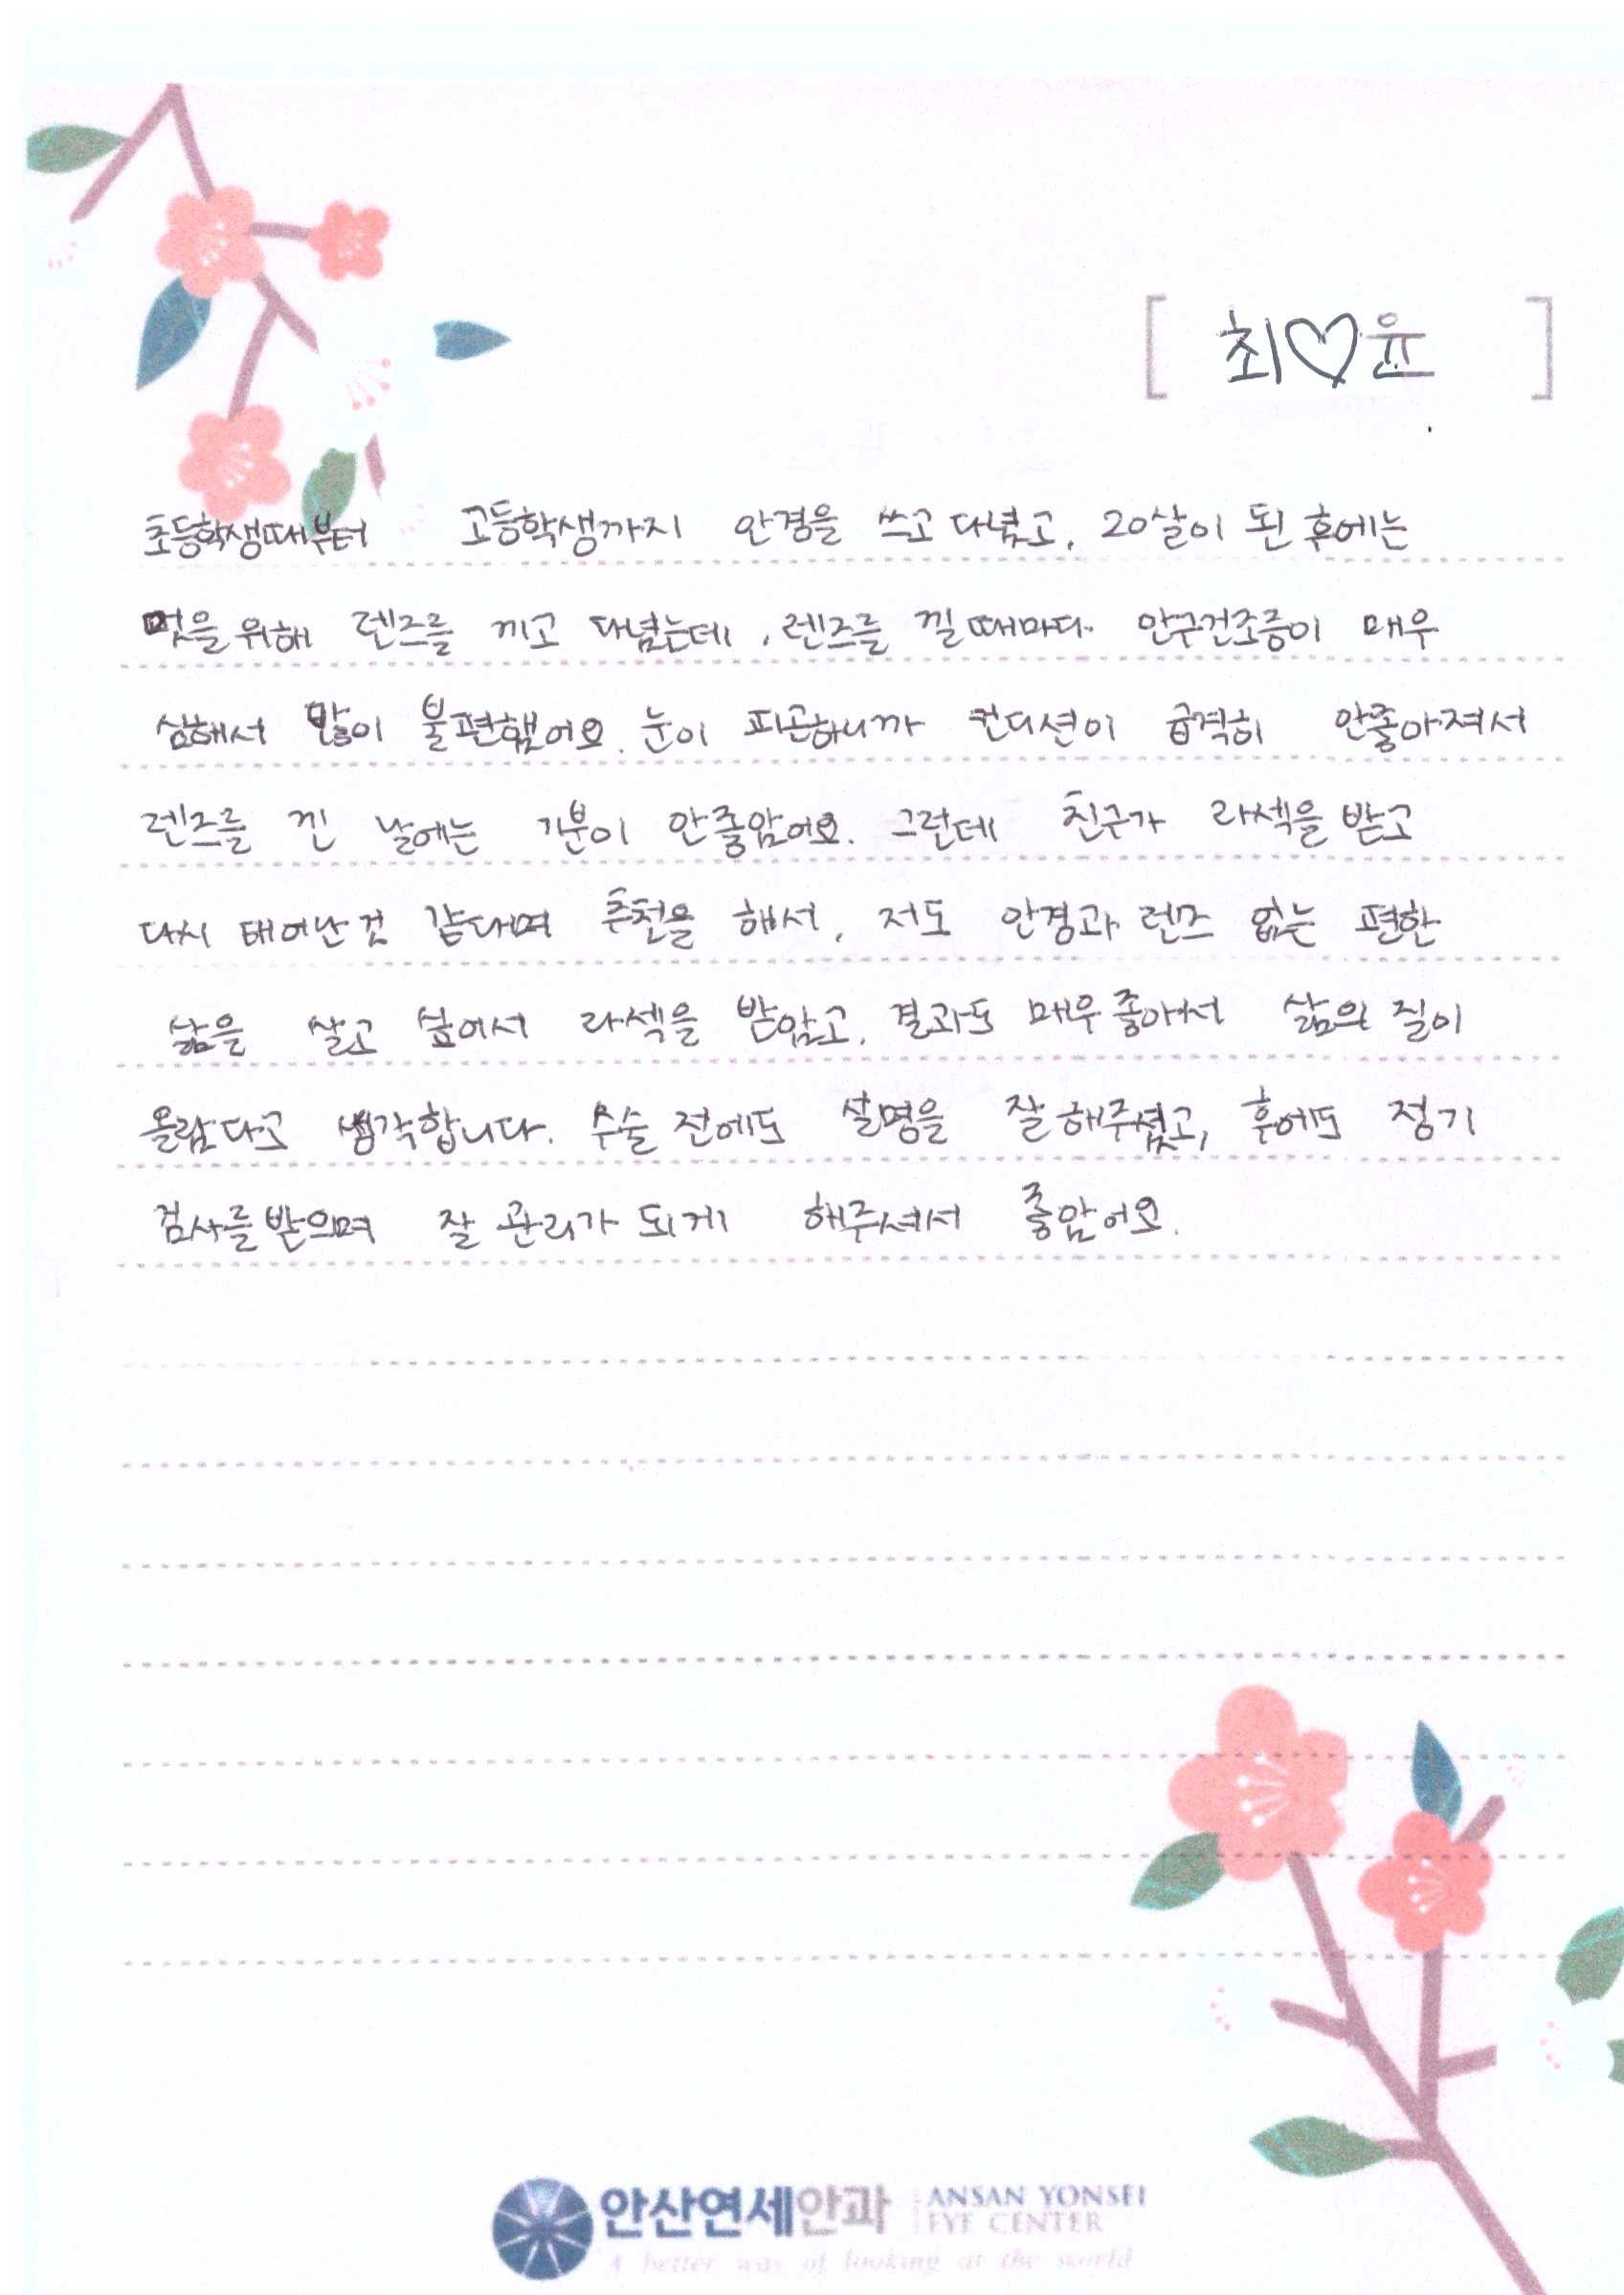 [ 최♡윤 ]
초등학생때부터 고등학생까지 안경을 쓰고 다녔고, 20살이 된 후에는
멋을 위해 렌즈를 끼고 다녔는데, 렌즈를 낄 때마다 안구건조증이 매우
심해서 많이 불편했어요. 눈이 피곤하니까 컨디션이 급격히 안좋아져서
렌즈를 낀 날에는 기분이 안좋았어요. 그런데 친구가 라섹을 받고
다시 태어난 것 같다며 추천을 해서, 저도 안경과 렌즈 없는 편한
삶을 살고 싶어서 라섹을 받았고, 결과도 매우 좋아서 삶의 질이
올랐다고 생각합니다. 수술 전에도 설명을 잘 해주셨고, 후에도 정기
검사를 받으며 잘 관리가 되게 해주셔서 좋았어요.
안산연세안과 ANSAN YONSEI
EYE CENTER
A better way of looking at the world